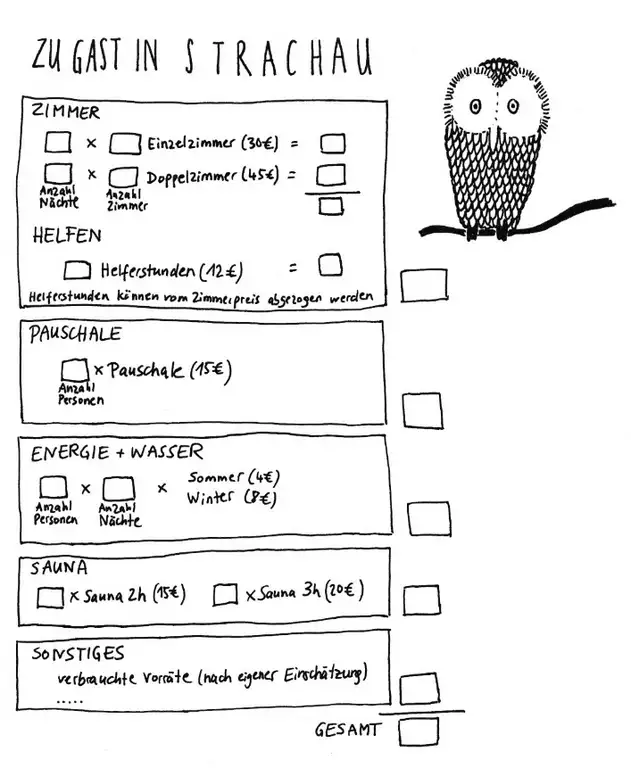 ZU GAST IN STRACHAU
ZIMMER
x Einzelzimmer (30€) =
x Doppelzimmer (45€) =
Anzahl Nächte Anzahl Zimmer
HELFEN
Helferstunden (12€) =
Helferstunden können vom Zimmerpreis abgezogen werden
PAUSCHALE
x Pauschale (15€)
Anzahl
Personen
ENERGIE + WASSER
Sommer (4€)
x x
Winter (8€)
Anzahl Personen Anzahl Nächte
SAUNA
x Sauna 2h (15€) x Sauna 3h (20€)
SONSTIGES
verbrauchte Vorräte (nach eigener Einschätzung)
.....
GESAMT